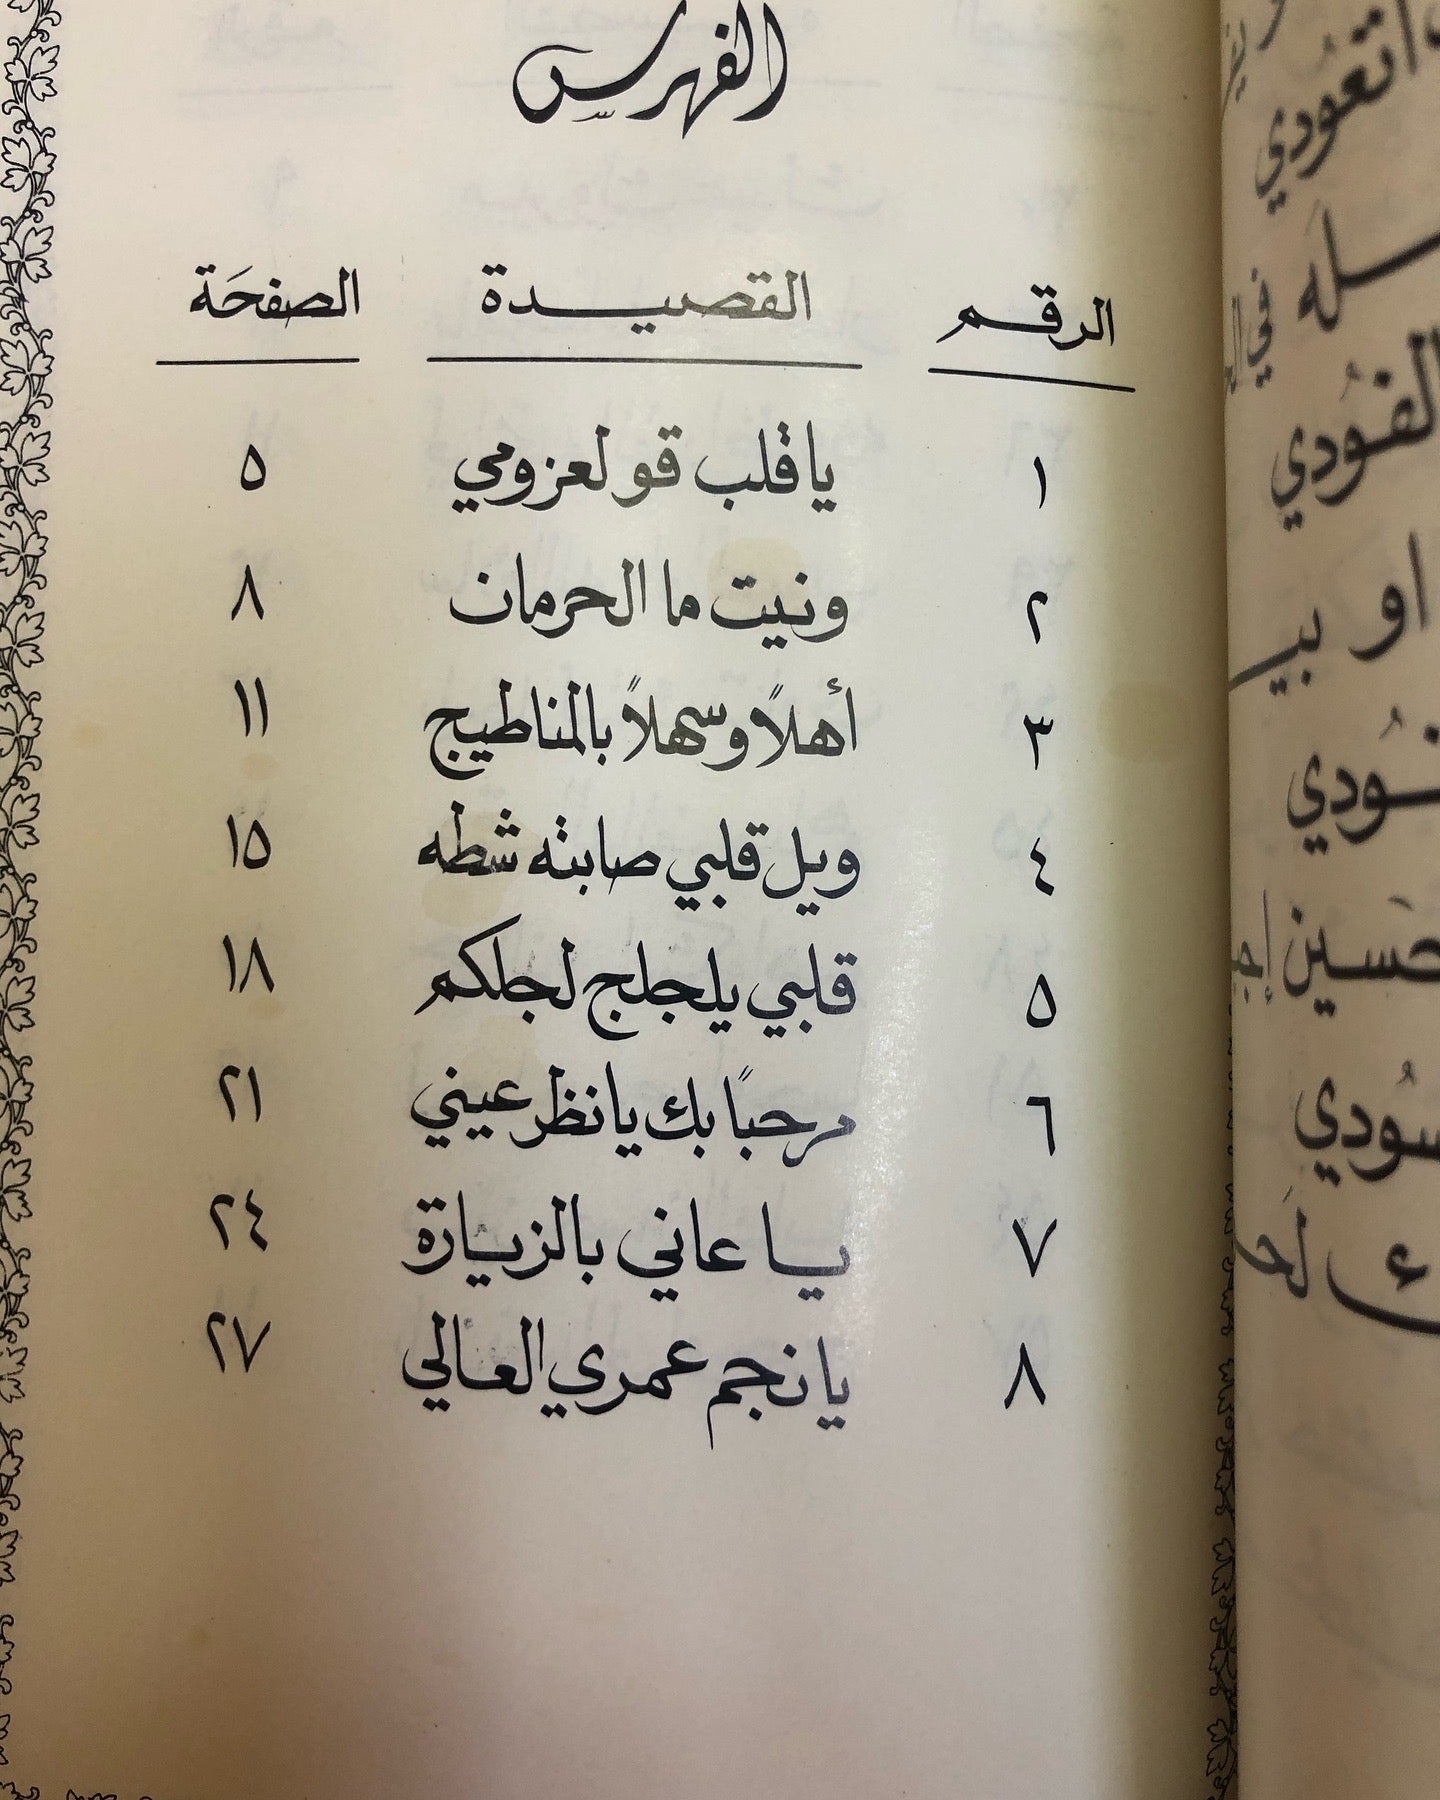 الفهرس
الرقم القصيدة الصفحَة
١ يا قلب قو لعزومي ٥
٢ ونيت ما الحرمان ٨
٣ أهلاً وسهلاً بالمناطيج ١١
٤ ويل قلبي صابته شطه ١٥
٥ قلبي يلجلج لجلكم ١٨
٦ مرحباً بك يا نظر عيني ٢١
٧ يا عاني بالزيارة ٢٤
٨ يا نجم عمري العالي ٢٧
تعودي
الفُودي
او